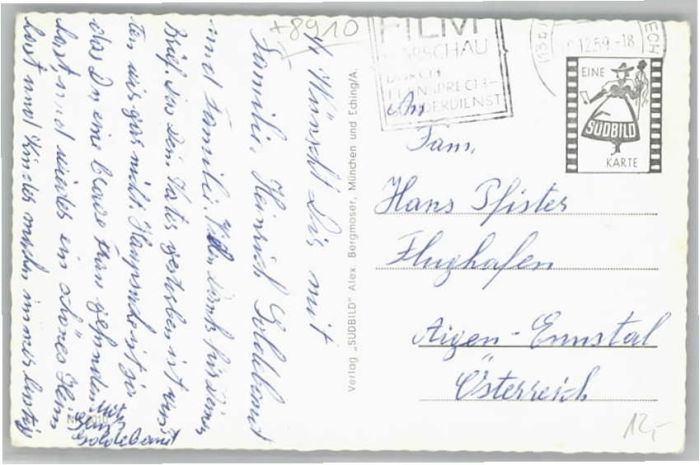 +8910
FILM
VORSCHAU
DURCH
FERNSPRECH-
SONDERDIENST
12.59.-18
EINE
SÜDBILD
KARTE
An
Fam.
Hans Pfister
Flughafen
Aigen-Ennstal
Österreich
12,-
Verlag „SÜDBILD" Alex. Bergmoser, München und Eching/A.
Wünscht Dir mit
Familie, Heinrich Goldeband
und Familie. Vielen Dank für Deinen
Brief. Dein Vater gestorben ist wust
ten wir gar nicht. Hauptsache ist
das Du eine brave Frau gefunden
hast und wieder ein schönes Heim
hast und Kinder machen immer lustig
Mit
Goldeband